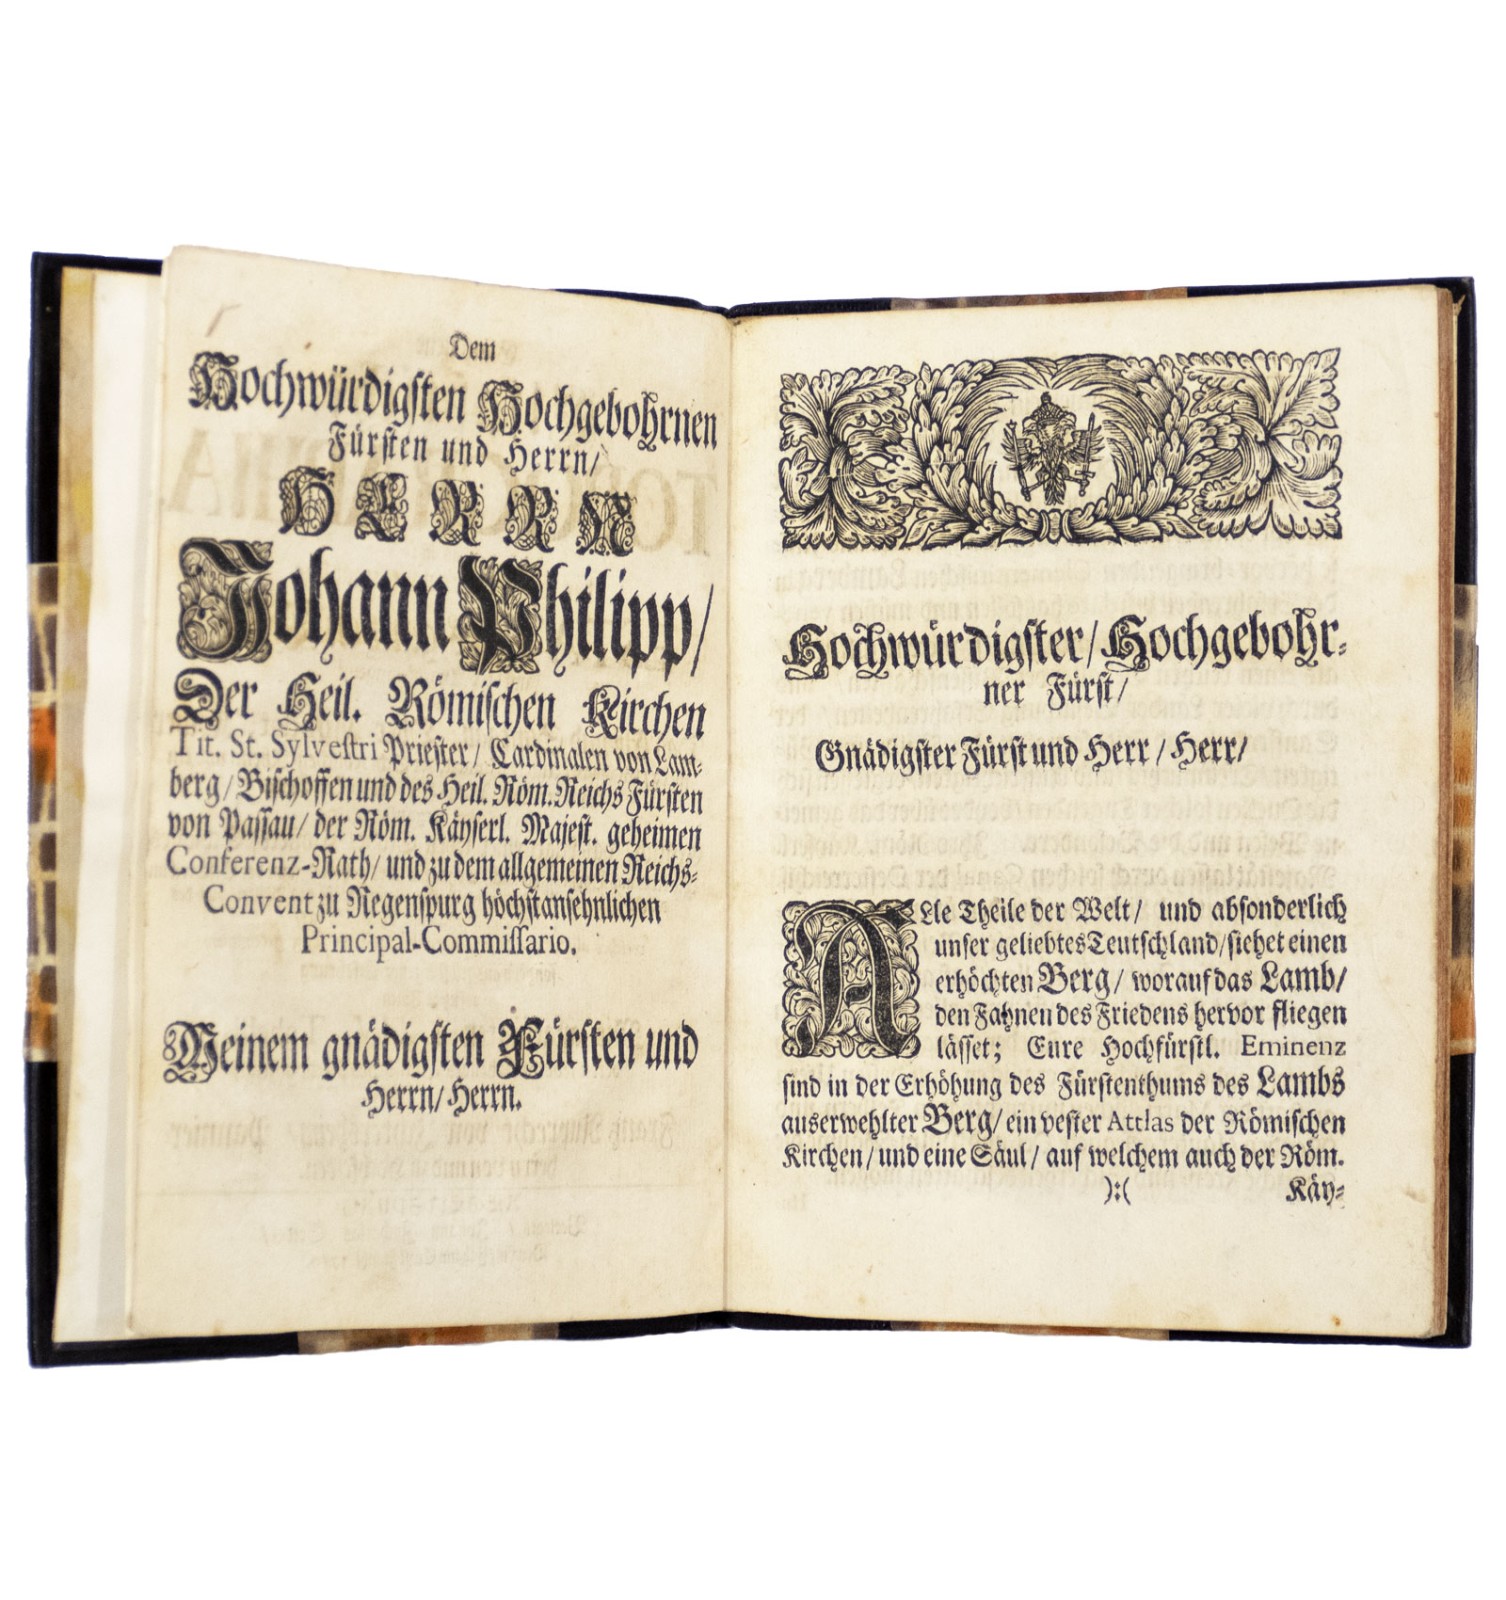 Dem
Hochwürdigsten Hochgebohrnen
Fürsten und Herrn/
HERRN
Johann Philipp/
Der Heil. Römischen Kirchen
Tit. St. Sylvestri Priester/ Cardinalen von Lam-
berg/ Bischoffen und des Heil. Röm. Reichs Fürsten
von Passau/ der Röm. Käyserl. Majest. geheimen
Conferenz-Rath/ und zu dem allgemeinen Reichs-
Convent zu Regenspurg höchstansehnlichen
Principal-Commissario.
Meinem gnädigsten Fürsten und
Herrn/ Herrn.
Hochwürdigster/ Hochgebohr-
ner Fürst/
Gnädigster Fürst und Herr/ Herr/
ALle Theile der Welt/ und absonderlich
unser geliebtes Teutschland/ siehet einen
erhöchten Berg/ worauf das Lamb/
den Fahnen des Friedens hervor fliegen
lässet; Eure Hochfürstl. Eminenz
sind in der Erhöhung des Fürstenthums des Lambs
auserwehlter Berg/ ein vester Attlas der Römischen
Kirchen/ und eine Säul/ auf welchem auch der Röm.
):( Käy-